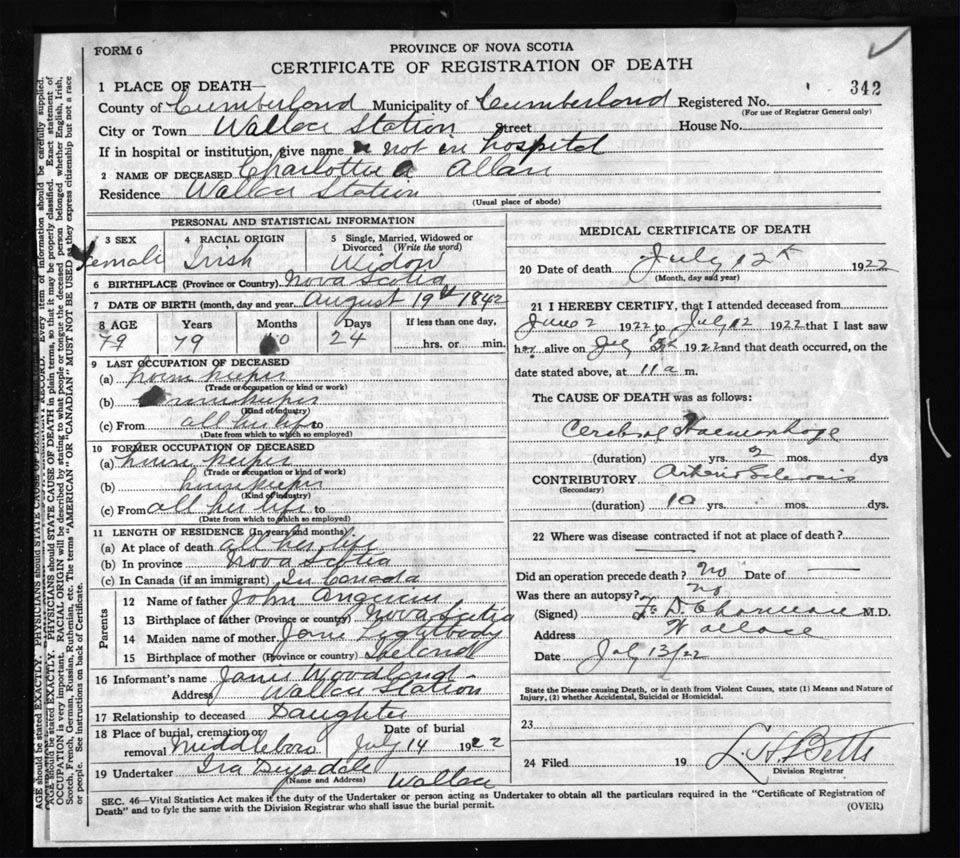 FORM 6
PROVINCE OF NOVA SCOTIA
CERTIFICATE OF REGISTRATION OF DEATH
342
1 PLACE OF DEATH
County of Cumberland Municipality of Cumberland Registered No.
(For use of Registrar General only)
City or Town Wallace Station Street House No.
If in hospital or institution, give name not in hospital
2 NAME OF DECEASED Charlotte A Allan
Residence Wallace Station
(Usual place of abode)
PERSONAL AND STATISTICAL INFORMATION
3 SEX Female
4 RACIAL ORIGIN Irish
5 Single, Married, Widowed or Divorced (Write the word) Widow
6 BIRTHPLACE (Province or Country) Nova Scotia
7 DATE OF BIRTH (month, day and year) August 19th 1842
8 AGE Years Months Days If less than one day,
79 79 10 24 hrs. or min.
9 LAST OCCUPATION OF DECEASED
(a) house keeper
(Trade or occupation or kind or work)
(b)
(Kind of industry)
(c) From all her life to
(Date from which to which so employed)
10 FORMER OCCUPATION OF DECEASED
(a) house keeper
(Trade or occupation or kind of work)
(b) housekeeper
(Kind of industry)
(c) From all her life to
(Date from which to which so employed)
11 LENGTH OF RESIDENCE (in years and months)
(a) At place of death all her life
(b) In province Nova Scotia
(c) In Canada (if an immigrant) In Canada
Parents
12 Name of father John
13 Birthplace of father (Province or country) Nova Scotia
14 Maiden name of mother Jane Lightbody
15 Birthplace of mother (Province or country) Ireland
16 Informant's name Janie Woodland
Address Wallace Station
17 Relationship to deceased Daughter
18 Place of burial, cremation or removal Middleboro
Date of burial July 14 1922
19 Undertaker Ira Drysdale
(Name and Address) Wallace
MEDICAL CERTIFICATE OF DEATH
20 Date of death July 12th 1922
(Month, day and year)
21 I HEREBY CERTIFY, that I attended deceased from
June 2 1922 to July 12 1922 that I last saw
her alive on July 1922 and that death occurred, on the
date stated above, at 11 a m.
The CAUSE OF DEATH was as follows:
Cerebral Haemorrhage
(duration) yrs. 2 mos. dys
CONTRIBUTORY Arterio Sclerosis
(Secondary)
(duration) 10 yrs. mos. dys.
22 Where was disease contracted if not at place of death?
Did an operation precede death? No Date of
Was there an autopsy? No
(Signed) D. M.D.
Address Wallace
Date July 13/22
State the Disease causing Death, or in death from Violent Causes, state (1) Means and Nature of
Injury, (2) whether Accidental, Suicidal or Homicidal.
23
24 Filed 19 L. H. Betts
Division Registrar
SEC. 46—Vital Statistics Act makes it the duty of the Undertaker or person acting as Undertaker to obtain all the particulars required in the "Certificate of Registration of
Death" and to fyle the same with the Division Registrar who shall issue the burial permit.
(OVER)